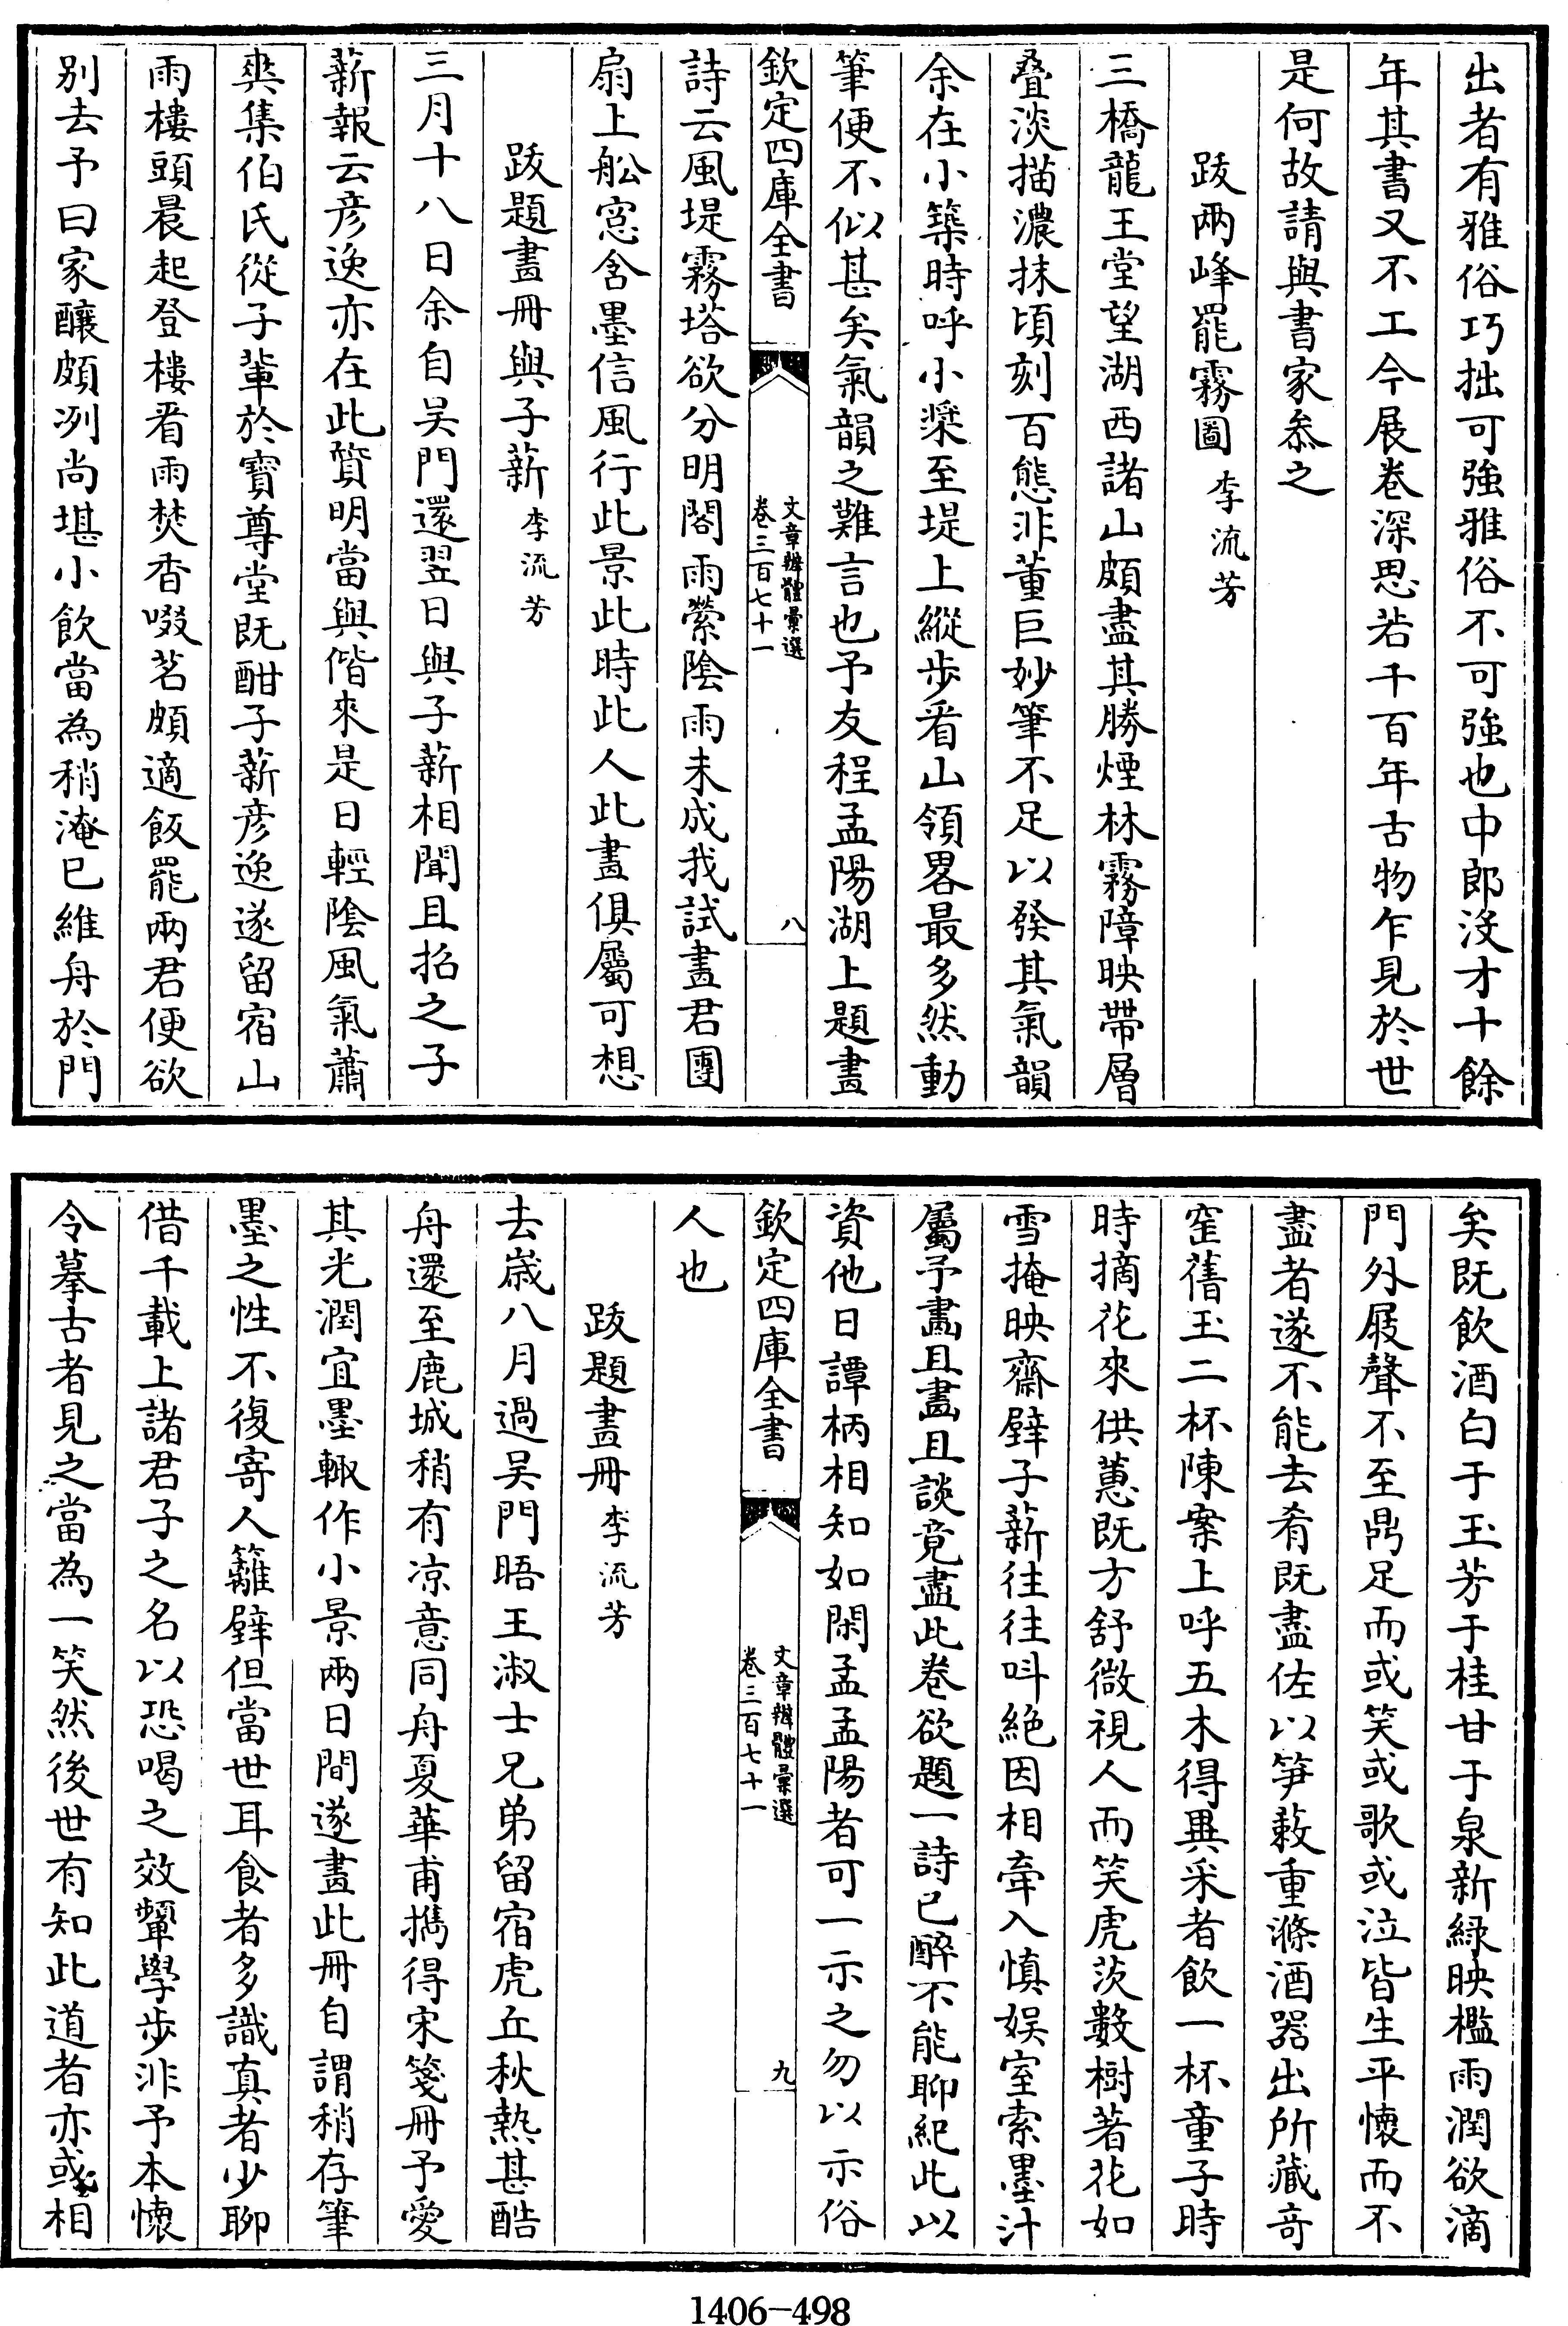 出者有雅俗巧拙可強雅俗不可強也中郎沒才十餘
年其書又不工今展卷深思若千百年古物乍見於世
是何故請與書家叅之
跋兩峰罷霧圖 李流芳
三橋龍王堂望湖西諸山頗盡其勝煙林霧障映帶層
疊淡描濃抹頃刻百態非董巨妙筆不足以發其氣韻
余在小築時呼小槳至堤上縱步看山領畧最多然動
筆便不似甚矣氣韻之難言也予友程孟陽湖上題畫
欽定四庫全書
文章辨體彙選
卷三百七十一
八
詩云風堤霧塔欲分明閣雨縈陰雨未成我試畫君團
扇上舩窓含墨信風行此景此時此人此畫俱屬可想
跋題畫冊與子薪 李流芳
三月十八日余自吴門還翌日與子薪相聞且招之子
薪報云彦逸亦在此質明當與偕來是日輕陰風氣蕭
爽集伯氏從子輩於寶尊堂既酣子薪彦逸遂留宿山
雨樓頭晨起登樓看雨焚香啜茗頗適飯罷兩君便欲
别去予曰家釀頗冽尚堪小飲當為稍淹巳維舟於門
矣既飲酒白于玉芳于桂甘于泉新緑映檻雨潤欲滴
門外屐聲不至鼎足而或笑或歌或泣皆生平懷而不
盡者遂不能去肴既盡佐以笋蔌重滌酒器出所藏竒
窑舊玉二杯陳案上呼五木得異采者飲一杯童子時
時摘花來供蕙既方舒微視人而笑虎茨數樹著花如
雪掩映齋壁子薪往往呌絶因相牽入慎娱室索墨汁
屬予畫且畫且談竟盡此卷欲題一詩已醉不能聊紀此以
資他日譚柄相知如閑孟孟陽者可一示之勿以示俗
欽定四庫全書
文章辨體彙選
卷三百七十一
九
人也
跋題畫冊 李流芳
去歲八月過吴門晤王淑士兄弟留宿虎丘秋熱甚酷
舟還至鹿城稍有凉意同舟夏華甫攜得宋箋冊予愛
其光潤宜墨輙作小景兩日間遂畫此冊自謂稍存筆
墨之性不復寄人籬壁但當世耳食者多識真者少聊
借千載上諸君子之名以恐喝之效顰學步非予本懷
令摹古者見之當為一笑然後世有知此道者亦或相
1406-498